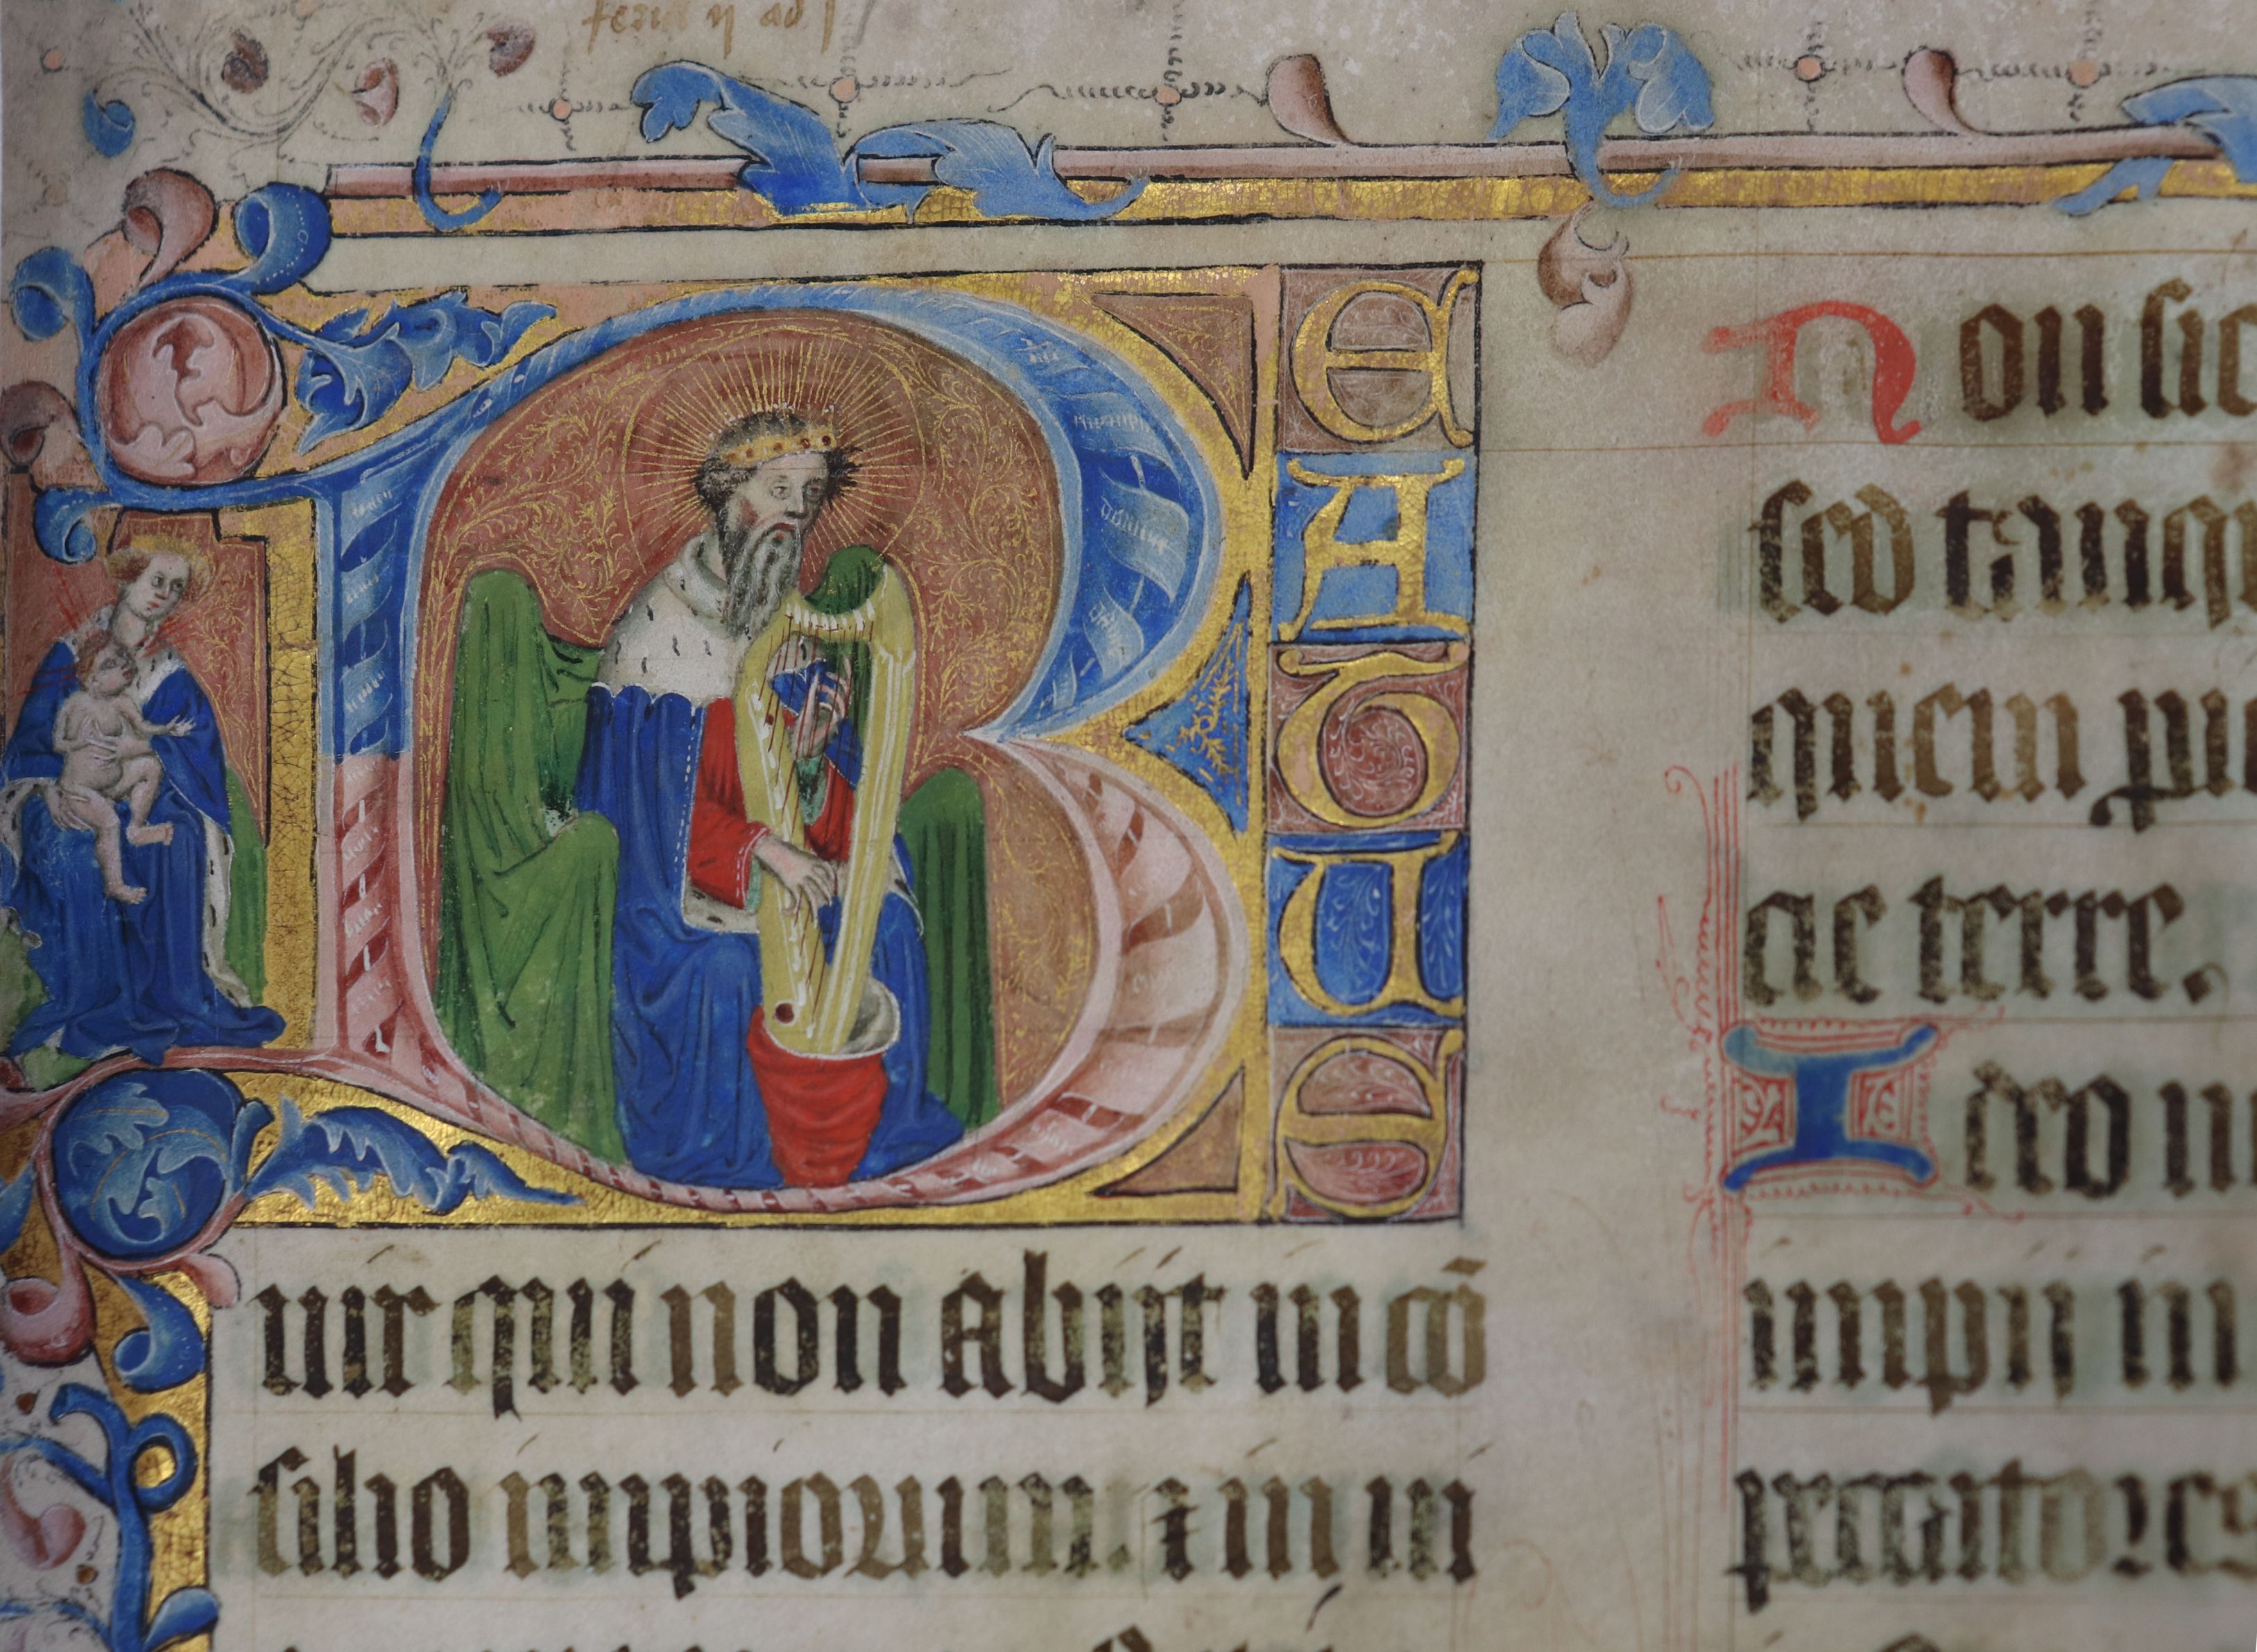 feria ij ad
BEATUS
uir qui non abijt in cō
silio impiorum. ⁊ in ui
Non sic
sed tanq
quem pro
ac terre.
Ideo n
impij in
peccatores